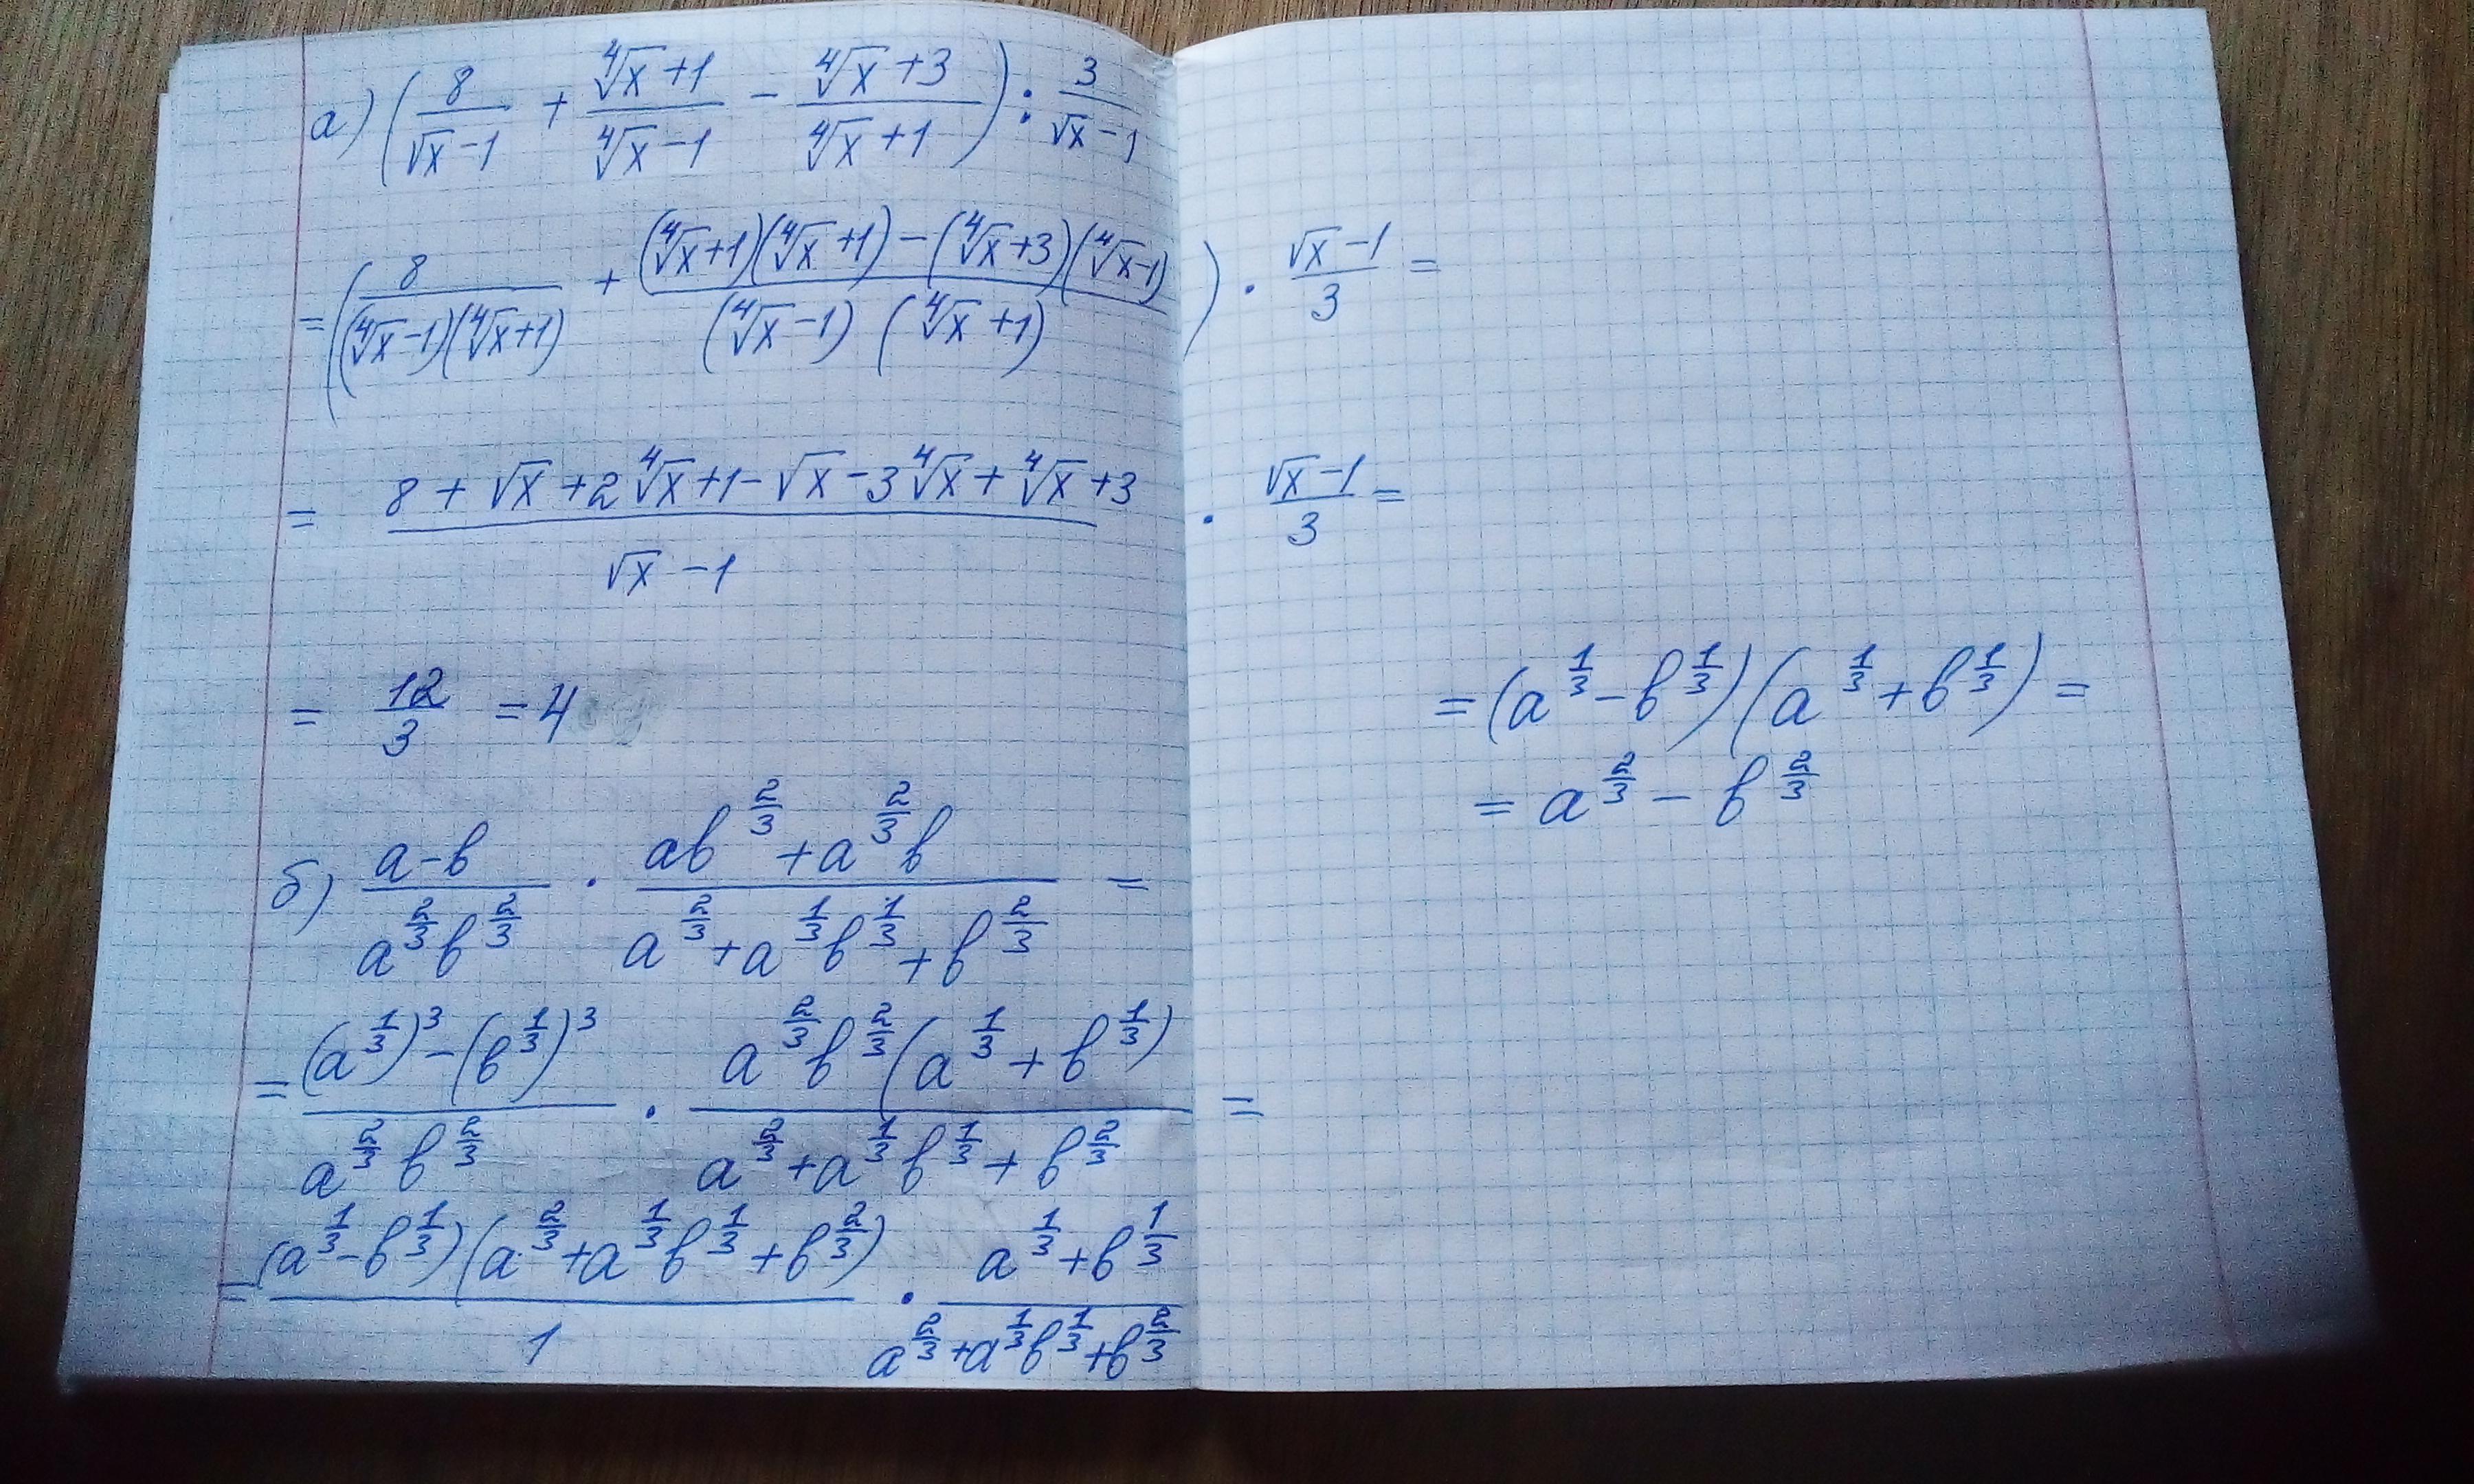 а) (8/(√x −1) + (∜x +1)/(∜x −1) − (∜x +3)/(∜x +1)) : 3/(√x −1)
= (8/((∜x −1)(∜x +1)) + ((∜x +1)(∜x +1) − (∜x +3)(∜x −1))/((∜x −1)(∜x +1))) · (√x −1)/3 =
= (8 + √x + 2∜x + 1 − √x − 3∜x + ∜x + 3)/(√x −1) · (√x −1)/3 =
= 12/3 = 4
б) (a−b)/(a^(2/3) b^(2/3)) · (ab^(2/3) + a^(2/3) b)/(a^(2/3) + a^(1/3) b^(1/3) + b^(2/3)) =
= ((a^(1/3))^3 − (b^(1/3))^3)/(a^(2/3) b^(2/3)) · (a^(2/3) b^(2/3) (a^(1/3) + b^(1/3)))/(a^(2/3) + a^(1/3) b^(1/3) + b^(2/3)) =
= ((a^(1/3) − b^(1/3))(a^(2/3) + a^(1/3) b^(1/3) + b^(2/3)))/1 · (a^(1/3) + b^(1/3))/(a^(2/3) + a^(1/3) b^(1/3) + b^(2/3))
= (a^(1/3) − b^(1/3))(a^(1/3) + b^(1/3)) =
= a^(2/3) − b^(2/3)